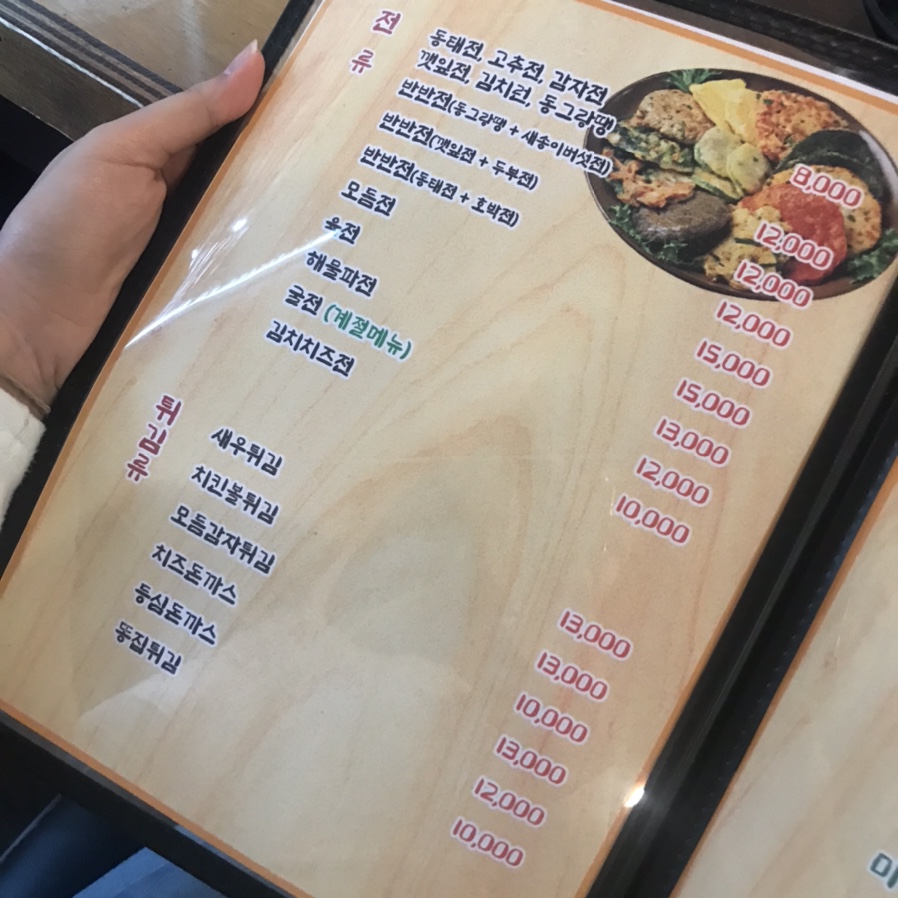 전류
동태전, 고추전, 감자전
깻잎전, 김치전, 동그랑땡 8,000
반반전(동그랑땡 + 새송이버섯전) 12,000
반반전(깻잎전 + 두부전) 12,000
반반전(동태전 + 호박전) 12,000
모듬전 15,000
육전 15,000
해물파전 13,000
굴전 (계절메뉴) 12,000
김치치즈전 10,000
튀김류
새우튀김 13,000
치킨볼튀김 13,000
모듬감자튀김 10,000
치즈돈까스 13,000
등심돈까스 12,000
똥집튀김 10,000